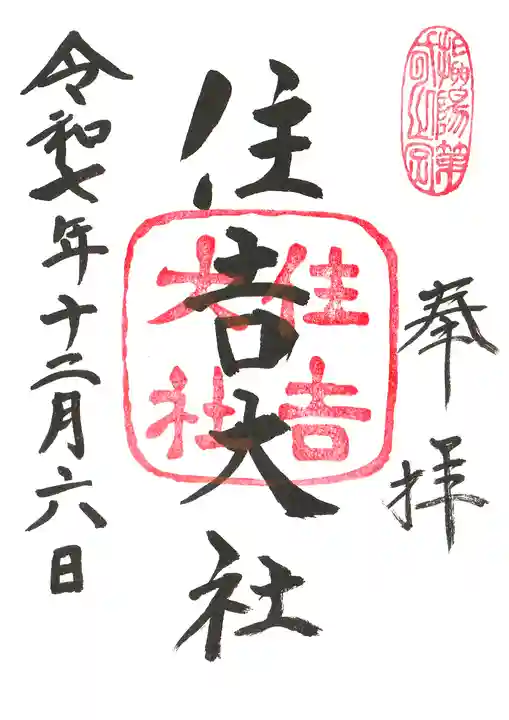 奉拝
住吉大社
住吉
大社
令和七年十二月六日